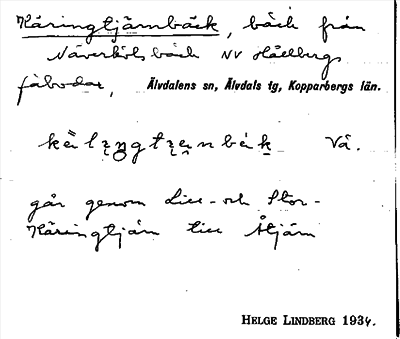 Käringtjärnbäck, bäck från
bäck NV Hållbergs
fäbodar, Älvdalens sn, Älvdals tg, Kopparbergs län.
Vå.
går genom Lill- och Stor-
Käringtjärn till Åtjärn
HELGE LINDBERG 1934.